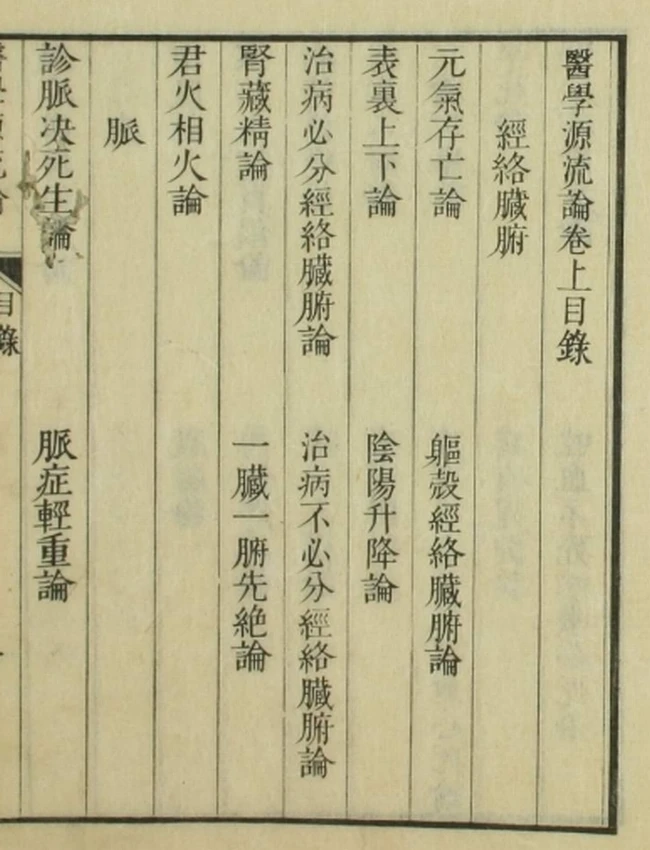 醫學源流論卷上目錄
經絡臟腑
元氣存亡論　軀殼經絡臟腑論
表裏上下論　陰陽升降論
治病必分經絡臟腑論　治病不必分經絡臟腑論
腎藏精論　一臟一腑先絶論
君火相火論
脈
診脈決死生論　脈症輕重論
目錄